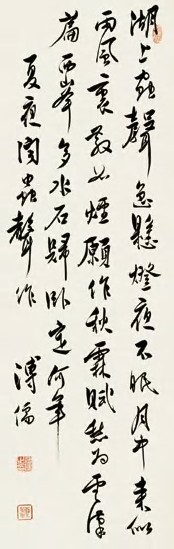 湖上蟲聲急懸燈夜不眠月中來似
雨風裏散如煙願作秋霖賦愁為雲漢
篇西峯多水石歸臥定何年
夏夜聞蟲聲作
溥儒